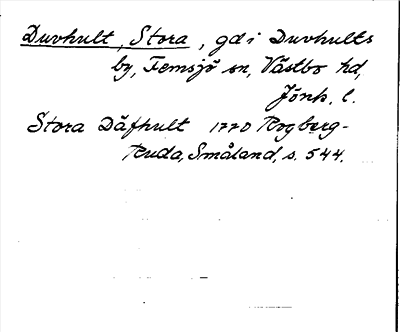 Duvhult, Stora, gd i Duvhults
by, Femsjö sn, Västbo hd,
Jönk. l.
Stora Dåfhult 1770 Rogberg-
Ruda, Småland, s. 544.